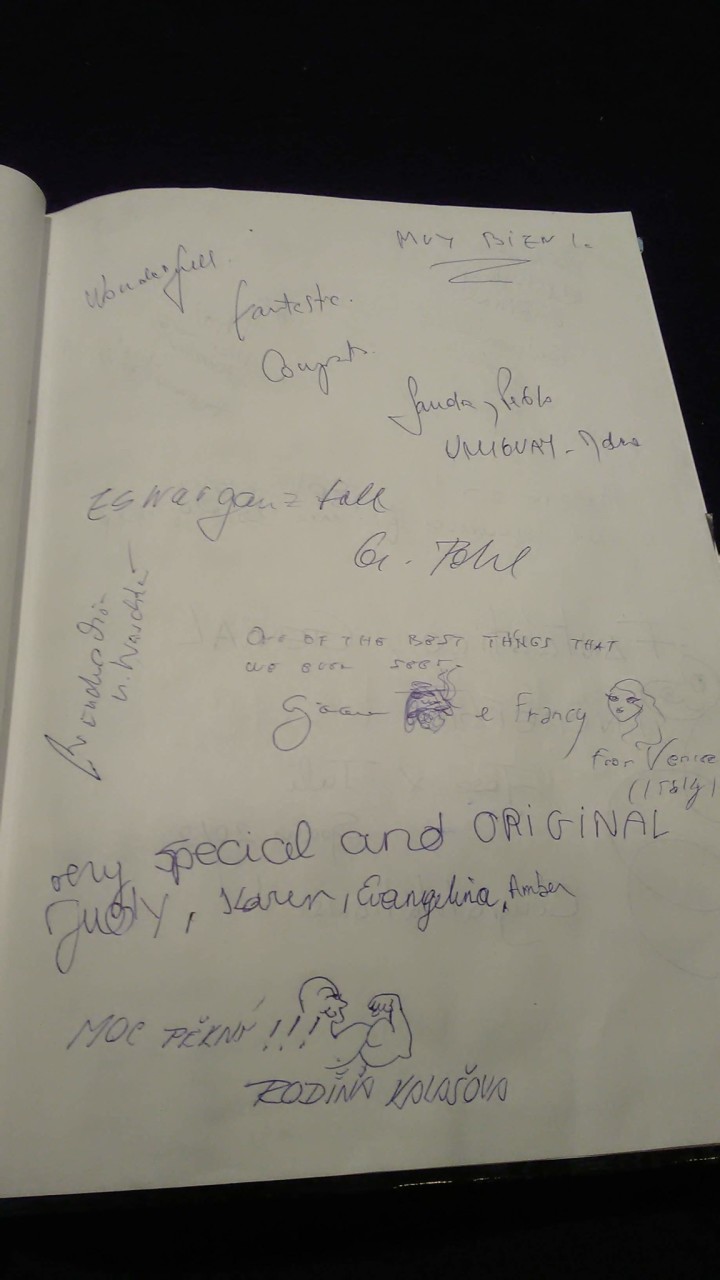 MUY BIEN!.
Wonderfull.
fantastic.
Congrats.
y Pablo
URUGUAY -
Es war ganz toll
G.
ONE OF THE BEST THINGS THAT
WE EVER SEEN
e Francy
From Venice
(ITALY)
very special and ORIGINAL
JUDY, Karen, Evangelina, Amber
MOC PĚKNÝ!!!
RODIŇA KALAŠOVA